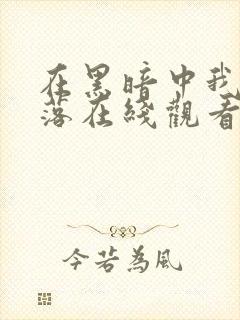 在黑暗中我
落在綫觀看
今若為風